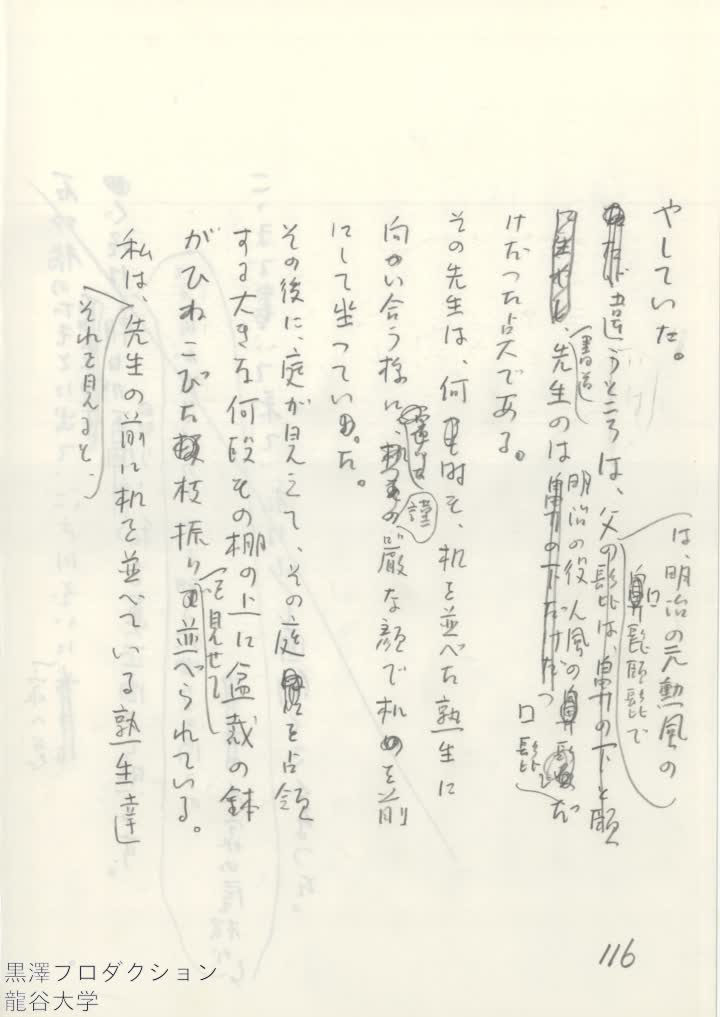 やしていた。
違うところは、父の髭は、鼻の下と願
は、明治の元勲風の
鼻口髭願髭で
、先生のは鼻の下だけだっ
書道
明治の役人風の鼻髭だ
口髭
けだった点である。
その先生は、何時も、机を並べた塾生に
向かい合う様に、謹厳な顔で机を前
にして坐っていた。
その後に、庭が見えて、その庭を占領
する大きな何段もの棚の上に盆栽の鉢
がひねこびた枝振り並べられている。
を見せて
私は、先生の前に机を並べている塾生達
それを見ると、
116
黒澤プロダクション
龍谷大学